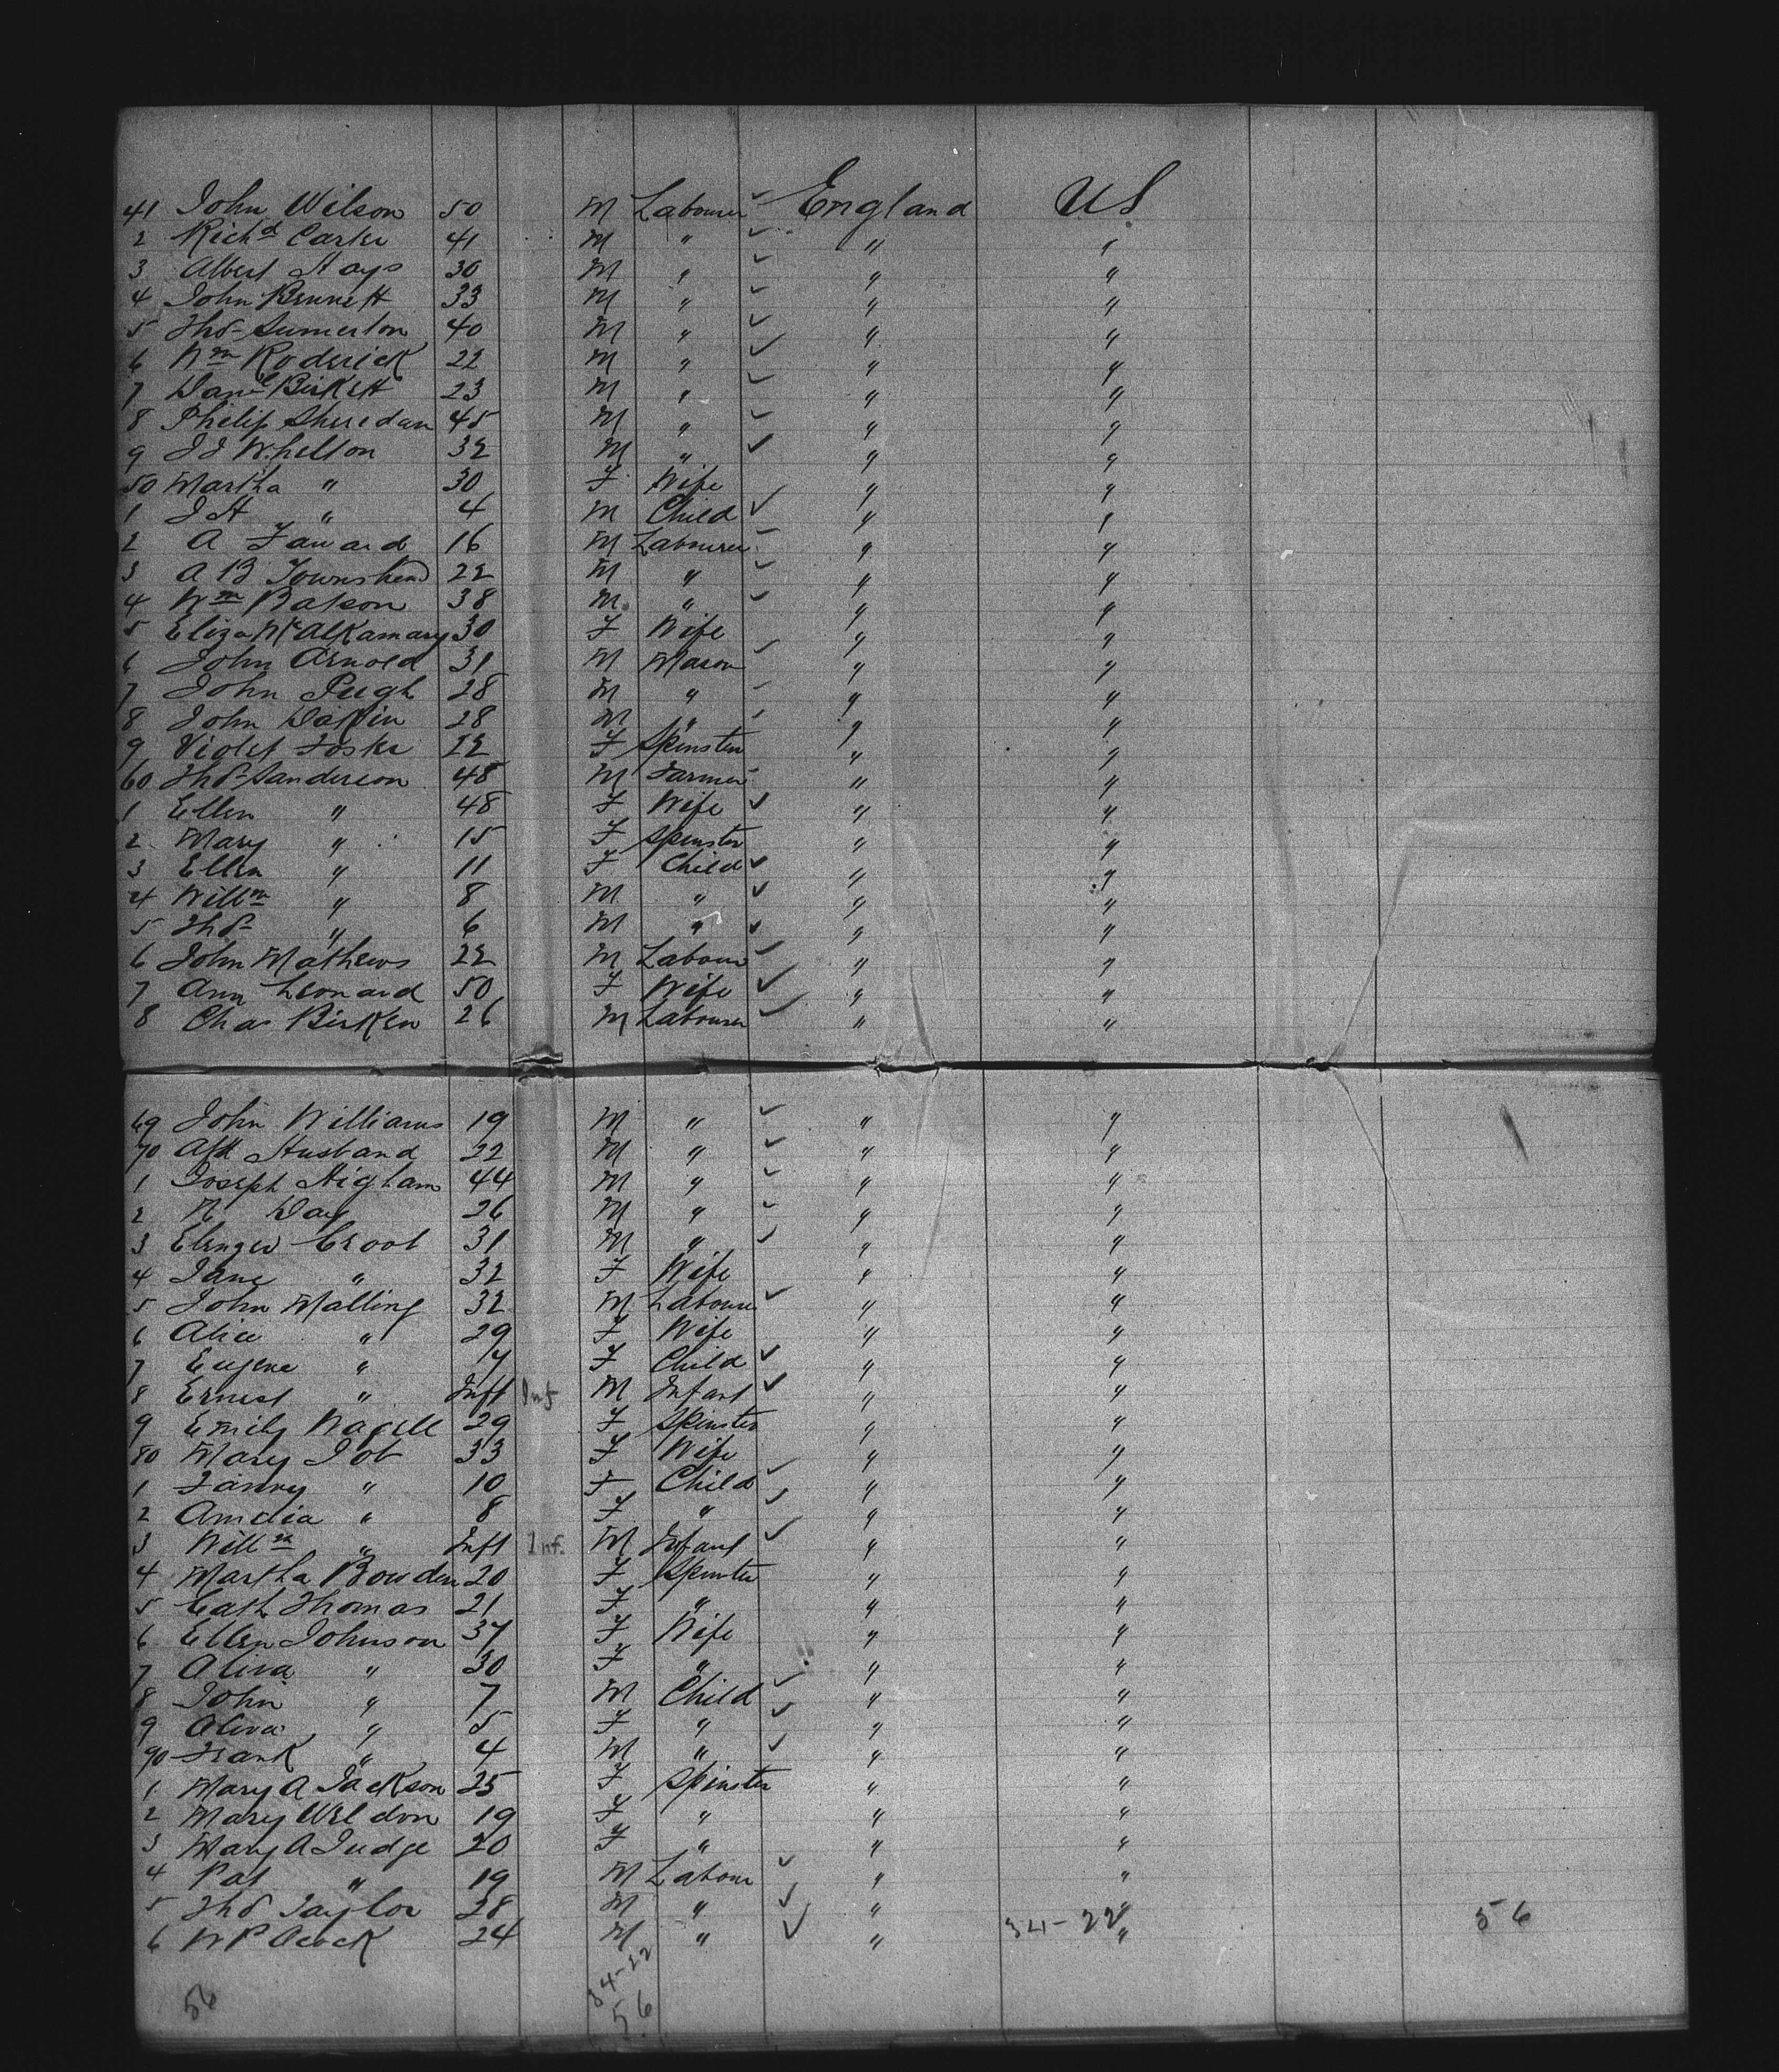 41 John Wilson 50 M Labourer England US
2 Richd Carter 41 M " " "
3 Albert Hays 30 M " " "
4 John Bennett 33 M " " "
5 Thos Sumerton 40 M " " "
6 Wm Roderick 22 M " " "
7 Danl Birkett 23 M " " "
8 Philip Sheredan 45 M " " "
9 J J Whelton 32 M " " "
50 Martha " 30 F Wife " "
1 J H " 4 M Child " "
2 A 16 M Labourer " "
3 A B Townshend 22 M " " "
4 Wm Batson 38 M " " "
5 Eliza 30 F Wife " "
6 John Arnold 31 M Mason " "
7 John Pugh 28 M " " "
8 John Dakin 28 M " " "
9 Violet 22 F Spinster " "
60 Thos Sanderson 48 M Farmer " "
1 Ellen " 48 F Wife " "
2 Mary " 15 F Spinster " "
3 Ellen " 11 F Child " "
4 Willm " 8 M " " "
5 Thos " 6 M " " "
6 John Mathews 22 M Labour " "
7 Ann Leonard 50 F Wife " "
8 Chas Birken 26 M Labourer " "
69 John Williams 19 M " " "
70 Alfd Husband 22 M " " "
1 Joseph Higham 44 M " " "
2 Day 26 M " " "
3 Croot 31 M " " "
4 Jane " 32 F Wife " "
5 John Malling 32 M Labourer " "
6 Alice " 29 F Wife " "
7 Eugene " F Child " "
8 Ernest " Inft Inf M Infant " "
9 Emily 29 F Spinster " "
80 Mary Job 33 F Wife " "
1 Fanny " 10 F Child " "
2 Amelia " 8 F " " "
3 Willm " Inft Inf. M Infant " "
4 Martha Bowden 20 F Spinster " "
5 Cath Thomas 21 F " " "
6 Ellen Johnson 37 F Wife " "
7 Oliva " 30 F " " "
8 John " 7 M Child " "
9 Oliva " 5 F " " "
90 Frank " 4 M " " "
1 Mary A Jackson 25 F Spinster " "
2 Mary Weldon 19 F " " "
3 Mary A Judge 20 F " " "
4 Pat " 19 M Labour " "
5 Thos Taylor 28 M " " "
6 W P 24 M " " 34-22 " 56
34-22
56 56